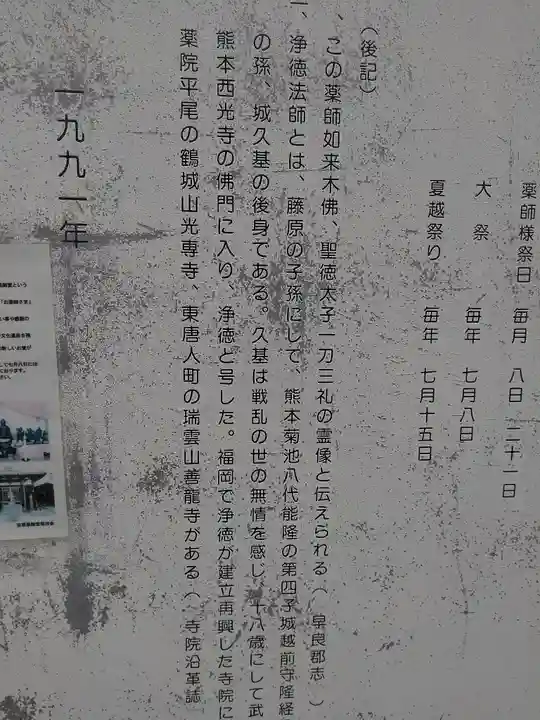 薬師様祭日　毎月　八日　二十一日
大　祭　　毎年　七月八日
夏越祭り　　毎年　七月十五日
（後記）
、この薬師如来木佛、聖徳太子一刀三礼の霊像と伝えられる（　早良郡志　）
一、浄徳法師とは、藤原の子孫にして、熊本菊池八代能隆の第四子城越前守隆経
の孫、城久基の後身である。久基は戦乱の世の無情を感じ、十八歳にして武
熊本西光寺の佛門に入り、浄徳と号した。福岡で浄徳が建立再興した寺院に
薬院平尾の鶴城山光専寺、東唐人町の瑞雲山善龍寺がある（　寺院沿革誌
一九九一年